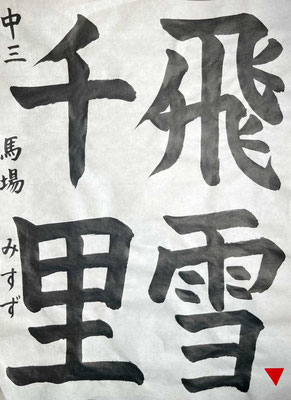 飛雪
千里
中三 馬場みすず